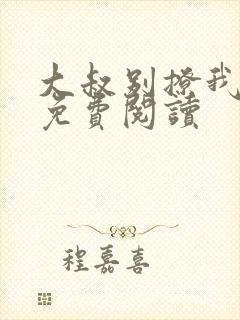 大叔别撩我
免費閱讀
程嘉喜